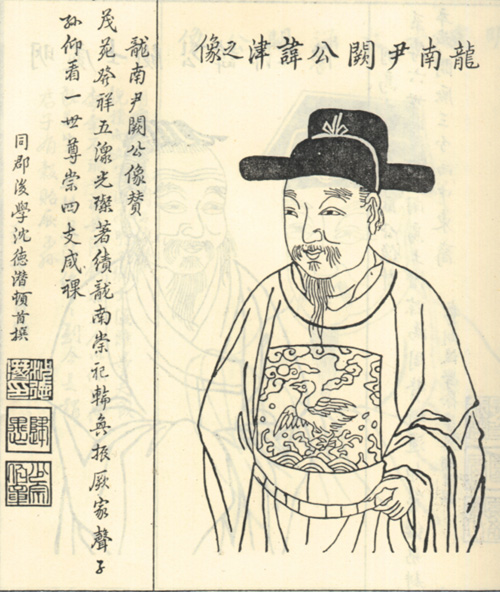 龍南尹闕公諱津之像
龍南尹闕公像贊
茂苑發祥五光燦著績龍南崇祀輪奐振厥家聲子
孫仰看一世尊崇四支咸祼
同郡後學沈德潛頓首撰
沈德潛印
歸愚